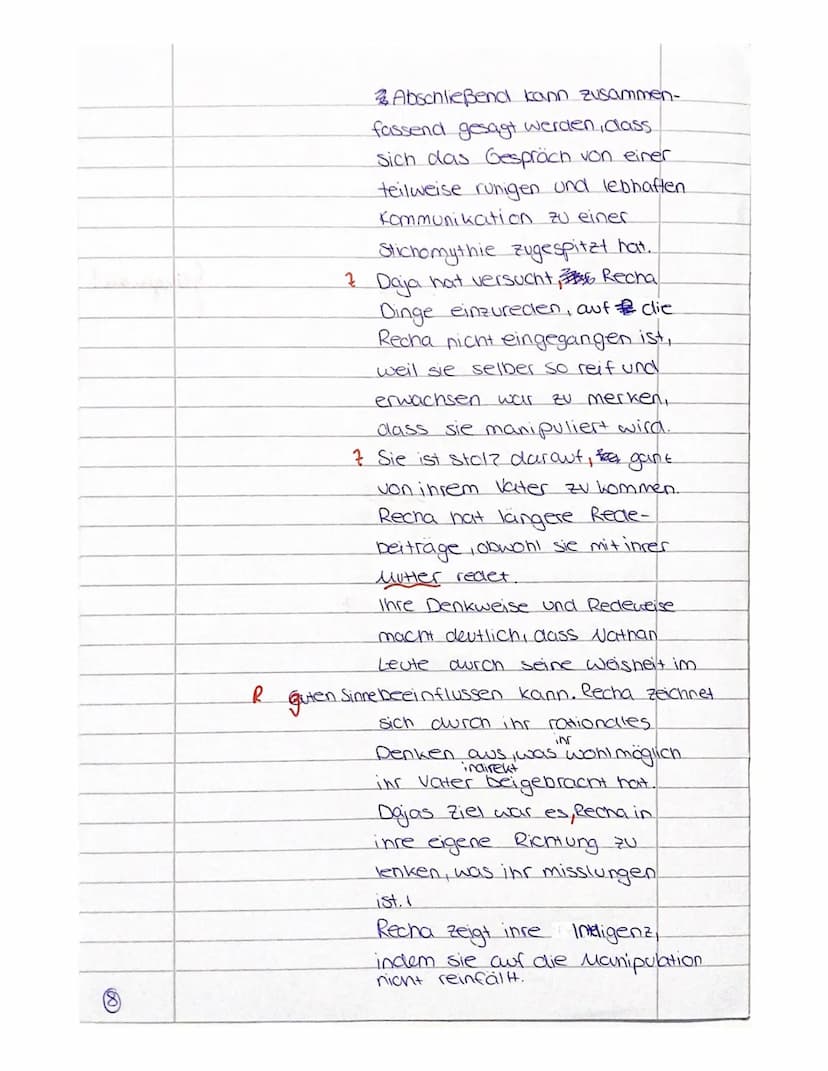 Abschließend kann zusammen-
fassend gesagt werden, dass
sich das Gespräch von einer
teilweise ruhigen und lebhaften
Kommunikation zu einer
Stichomythie zugespitzt hat.
Z Daja hat versucht, Recha
Dinge einzureden, auf die
Recha nicht eingegangen ist,
weil sie selber so reif und
erwachsen war zu merken,
dass sie manipuliert wird.
Z Sie ist stolz darauf,
von ihrem Vater zu kommen.
Recha hat längere Rede-
beiträge, obwohl sie mit ihrer
Mutter redet.
Ihre Denkweise und Redeweise
macht deutlich, dass Nathan
Leute durch seine Weisheit im
R guten Sinne beeinflussen kann. Recha zeichnet
sich durch ihr rationales
Denken aus, was ihr wohl möglich
ihr Vater indirekt beigebracht hat.
Dajas Ziel war es, Recha in
ihre eigene Richtung zu
lenken, was ihr misslungen
ist.
Recha zeigt ihre Inteligenz,
indem sie auf die Manipulation
nicht reinfält.
8